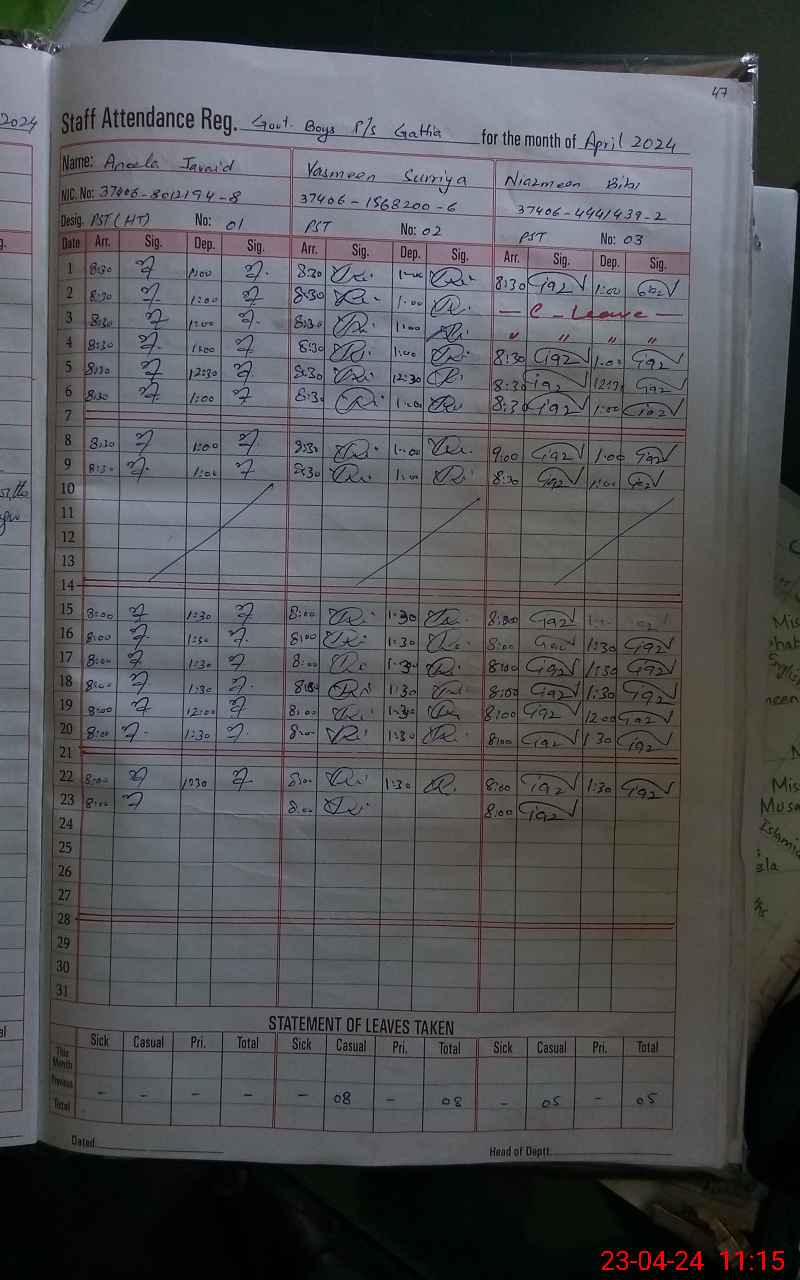 47
2024
Staff Attendance Reg. Govt. Boys P/s Gathia for the month of April 2024
Name: Aneela Javaid Yasmeen Surriya Niazmeen Bibi
NIC. No: 37406-8012194-8 37406-1568200-6 37406-4441439-2
Desig. PST (HT) No: 01 PST No: 02 PST No: 03
Date Arr. Sig. Dep. Sig. Arr. Sig. Dep. Sig. Arr. Sig. Dep. Sig.
1 8:30 1:00 8:30 1:00 8:30 1:00
2 8:30 1:00 8:30 1:00 — C - Leave —
3 8:30 1:00 8:30 1:00 " " " "
4 8:30 1:00 8:30 1:00 8:30 1:00
5 8:30 12:30 8:30 12:30 8:30
6 8:30 1:00 8:30 1:00 8:30 1:00
7
8 8:30 1:00 8:30 1:00 9:00 1:00
9 8:30 1:00 8:30 1:00 8:30 1:00
10
11
12
13
14
15 8:00 1:30 8:00 1:30 8:00
16 8:00 1:30 8:00 1:30 8:00 1:30
17 8:00 1:30 8:00 1:30 8:00 1:30
18 8:00 1:30 8:00 1:30 8:00 1:30
19 8:00 12:00 8:00 1:30 8:00 12:00
20 8:00 1:30 8:00 1:30 8:00 1:30
21
22 8:00 1:30 8:00 1:30 8:00 1:30
23 8:00 8:00 8:00
24
25
26
27
28
29
30
31
STATEMENT OF LEAVES TAKEN
Sick Casual Pri. Total Sick Casual Pri. Total Sick Casual Pri. Total
This Month
Previous - - - - - 08 - 08 - 05 - 05
Total
Dated Head of Deptt.
23-04-24 11:15